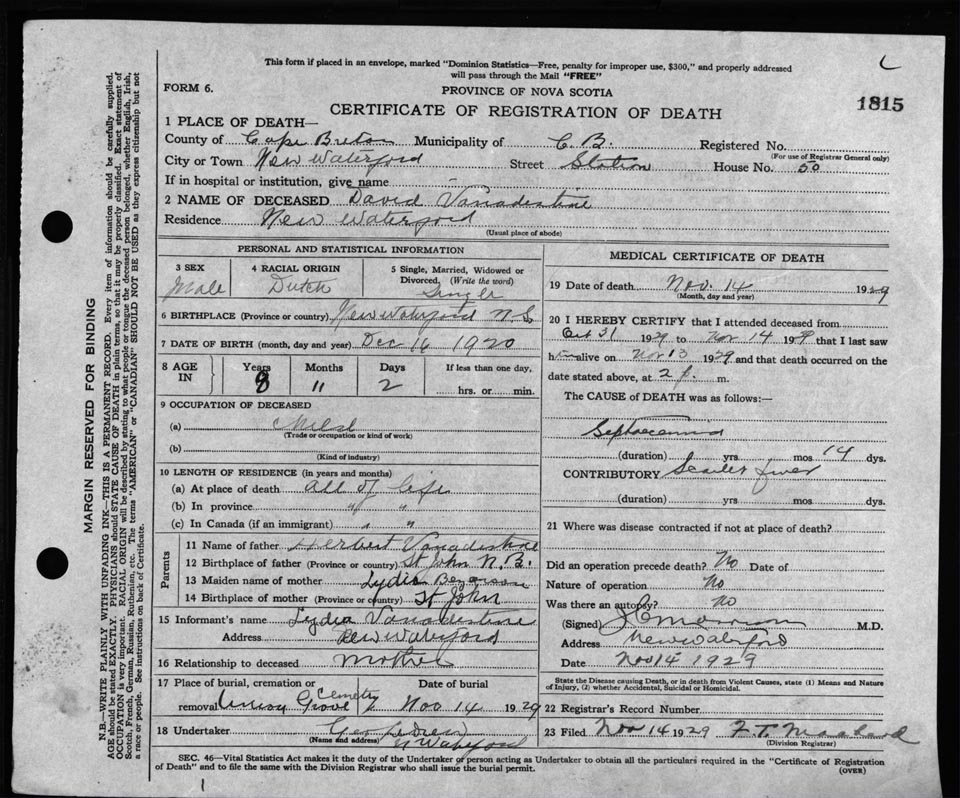 This form if placed in an envelope, marked "Dominion Statistics—Free, penalty for improper use, $300," and properly addressed
will pass through the Mail "FREE"
FORM 6.
PROVINCE OF NOVA SCOTIA
CERTIFICATE OF REGISTRATION OF DEATH
1815
1 PLACE OF DEATH—
County of Cape Breton Municipality of C. B. Registered No.
(For use of Registrar General only)
City or Town New Waterford Street Station House No. 50
If in hospital or institution, give name
2 NAME OF DECEASED David Vanadestine
Residence New Waterford
(Usual place of abode)
PERSONAL AND STATISTICAL INFORMATION
3 SEX
Male
4 RACIAL ORIGIN
Dutch
5 Single, Married, Widowed or
Divorced. (Write the word)
Single
6 BIRTHPLACE (Province or country) New Waterford N.S.
7 DATE OF BIRTH (month, day and year) Dec 16 1920
8 AGE IN Years Months Days If less than one day,
8 " 2 hrs. or min.
9 OCCUPATION OF DECEASED
(a) Child
(Trade or occupation or kind of work)
(b)
(Kind of industry)
10 LENGTH OF RESIDENCE (in years and months)
(a) At place of death all of life
(b) In province " "
(c) In Canada (if an immigrant) " "
Parents
11 Name of father Herbert Vanadestine
12 Birthplace of father (Province or country) St John N.B.
13 Maiden name of mother Lydia Bezanson
14 Birthplace of mother (Province or country) St John
15 Informant's name Lydia Vanadestine
Address New Waterford
16 Relationship to deceased mother
17 Place of burial, cremation or Date of burial
removal Union Grove Cemetry Nov 14 1929
18 Undertaker
(Name and address) N Waterford
MEDICAL CERTIFICATE OF DEATH
19 Date of death Nov. 14 1929
(Month, day and year)
20 I HEREBY CERTIFY that I attended deceased from
Oct 31 1929 to Nov 14 1929 that I last saw
him alive on Nov 13 1929 and that death occurred on the
date stated above, at 2 p. m.
The CAUSE of DEATH was as follows:—
Septicaemia
(duration) yrs mos 14 dys.
CONTRIBUTORY Scarlet fever
(duration) yrs mos dys.
21 Where was disease contracted if not at place of death?
Did an operation precede death? No Date of
Nature of operation No
Was there an autopsy? no
(Signed) M.D.
Address New Waterford
Date Nov 14 1929
State the Disease causing Death, or in death from Violent Causes, state (1) Means and Nature
of Injury, (2) whether Accidental, Suicidal or Homicidal.
22 Registrar's Record Number
23 Filed Nov 14 1929 F. T.
(Division Registrar)
SEC. 46—Vital Statistics Act makes it the duty of the Undertaker or person acting as Undertaker to obtain all the particulars required in the "Certificate of Registration
of Death" and to file the same with the Division Registrar who shall issue the burial permit.
(OVER)
MARGIN RESERVED FOR BINDING
N.B.—WRITE PLAINLY WITH UNFADING INK—THIS IS A PERMANENT RECORD. Every item of information should be carefully supplied.
AGE should be stated EXACTLY. PHYSICIANS should STATE CAUSE OF DEATH in plain terms, so that it may be properly classified. Exact statement of
OCCUPATION is very important. RACIAL ORIGIN will be described by stating to what people or tongue the deceased person belonged, whether English, Irish,
Scotch, French, German, Russian, Ruthenian, etc. The terms "AMERICAN" or "CANADIAN" SHOULD NOT BE USED as they express citizenship but not
a race or people. See instructions on back of Certificate.